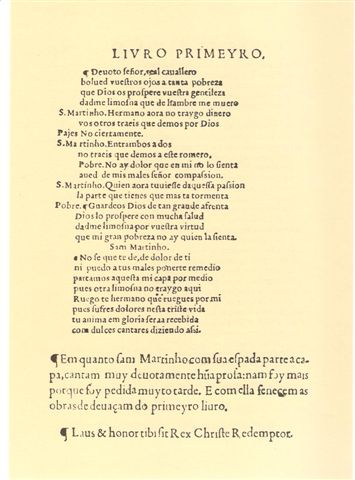 LIVRO PRIMEYRO.
¶ Deuoto señor, real cauallero
bolued vuestros ojos a tanta pobreza
que Dios os prospere vuestra gentileza
dadme limosna que de hambre me muero
S. Martinho. Hermano aora no traygo dinero
vos otros traeis que demos por Dios
Pajes No ciertamente.
S. Martinho. Entrambos a dos
no traeis que demos a este romero,
Pobre. No ay dolor que en mi no lo sienta
aued de mis males señor compassion.
S. Martinho. Quien aora tuuiesse daquessa passion
la parte que tienes que mas ta tormenta
Pobre. ¶ Guardeos Dios de tan grande afrenta
Dios lo prospere con mucha salud
dadme limosna por vuestra virtud
que mi gran pobreza no ay quien la sienta.
Sam Martinho.
¶ No se que te de, de dolor de ti
ni puedo a tus males ponerte remedio
partamos aquesta mi capa por medio
pues otra limosna no traygo aqui
Ruego te hermano que ruegues por mi
pues sufres dolores nesta triste vida
tu anima em gloria sera recebida
com dulces cantares diziendo assi.
¶ Em quanto sam Martinho com sua espada parte a ca-
pa, cantam muy deuotamente hũa prosa: nam foy mais
porque foy pedida muyto tarde. E com ella fenecem as
obras de deuaçam do primeyro liuro.
¶ Laus & honor tibi sit Rex Christe Redemptor.